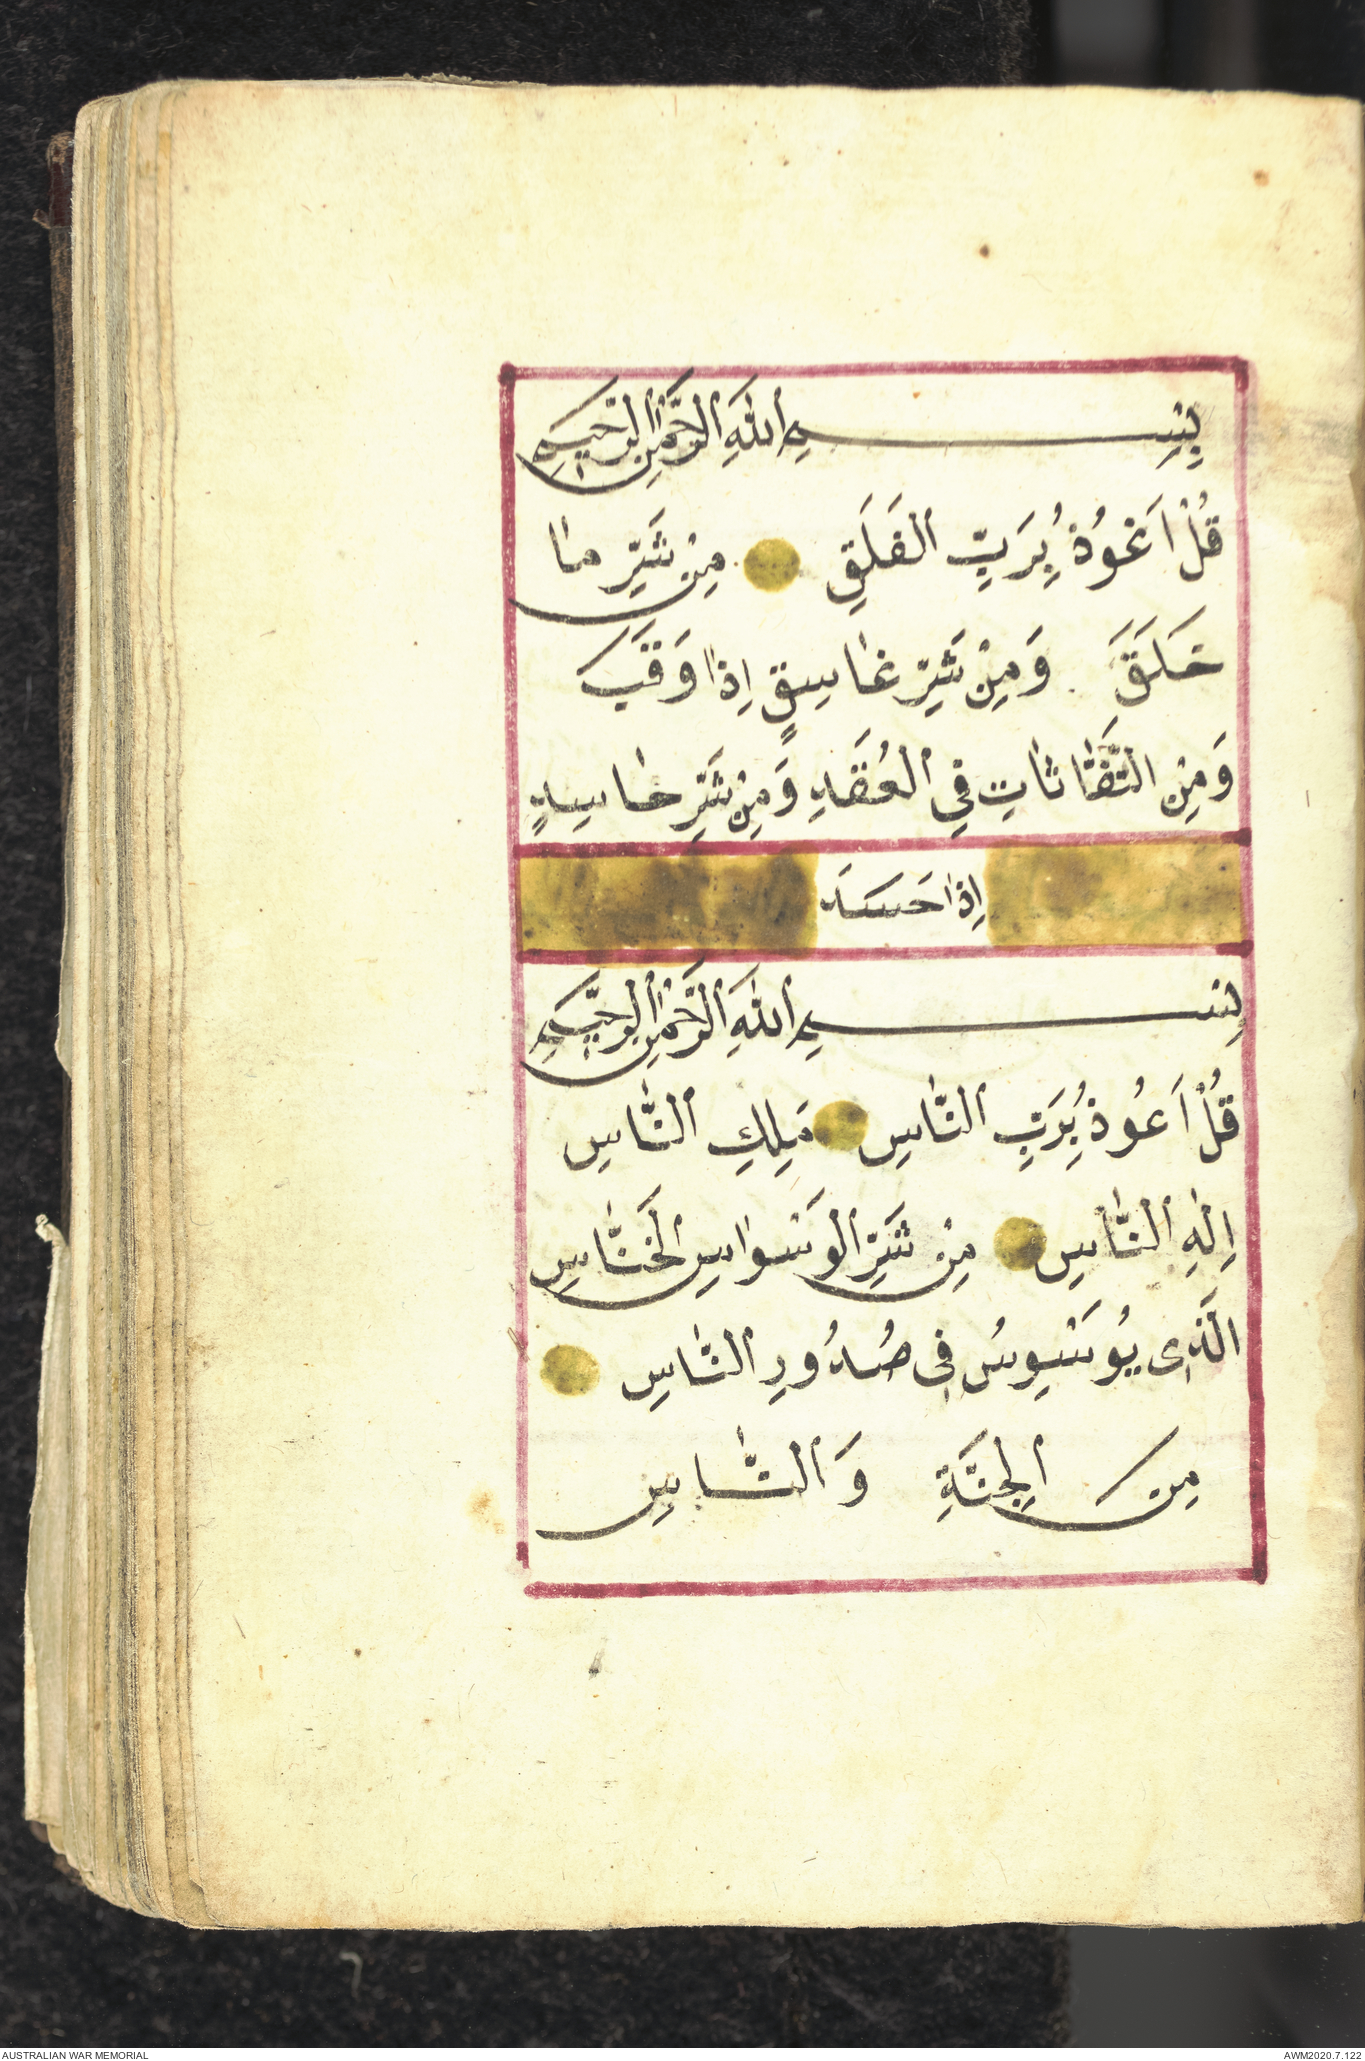 بِسْمِ اللهِ الرَّحْمٰنِ الرَّحِيمِ
قُلْ اَعُوُذُ بِرَبِّ الفَلَقِ مِنْ شَرِّ مٰا
خَلَقَ وَمِنْ شَرِّ غٰاسِقٍ اِذٰا وَقَبَ
وَمِنْ النَّفّٰاثٰاتِ فِي العُقَدِ وَمِنْ شَرِّ حٰاسِدٍ
اِذٰا حَسَدَ
بِسْمِ اللهِ الرَّحْمٰنِ الرَّحِيمِ
قُلْ اَعُوذُ بِرَبِّ النّٰاسِ مَلِكِ النّٰاسِ
اِلٰهِ النّٰاسِ مِنْ شَرِّ الوَسْوٰاسِ الخَنّٰاسِ
الَّذِى يُوَسْوِسُ فِى صُدُورِ النّٰاسِ
مِنَ الجِنَّةِ وَالنّٰاسِ
AUSTRALIAN WAR MEMORIAL AWM2020.7.122